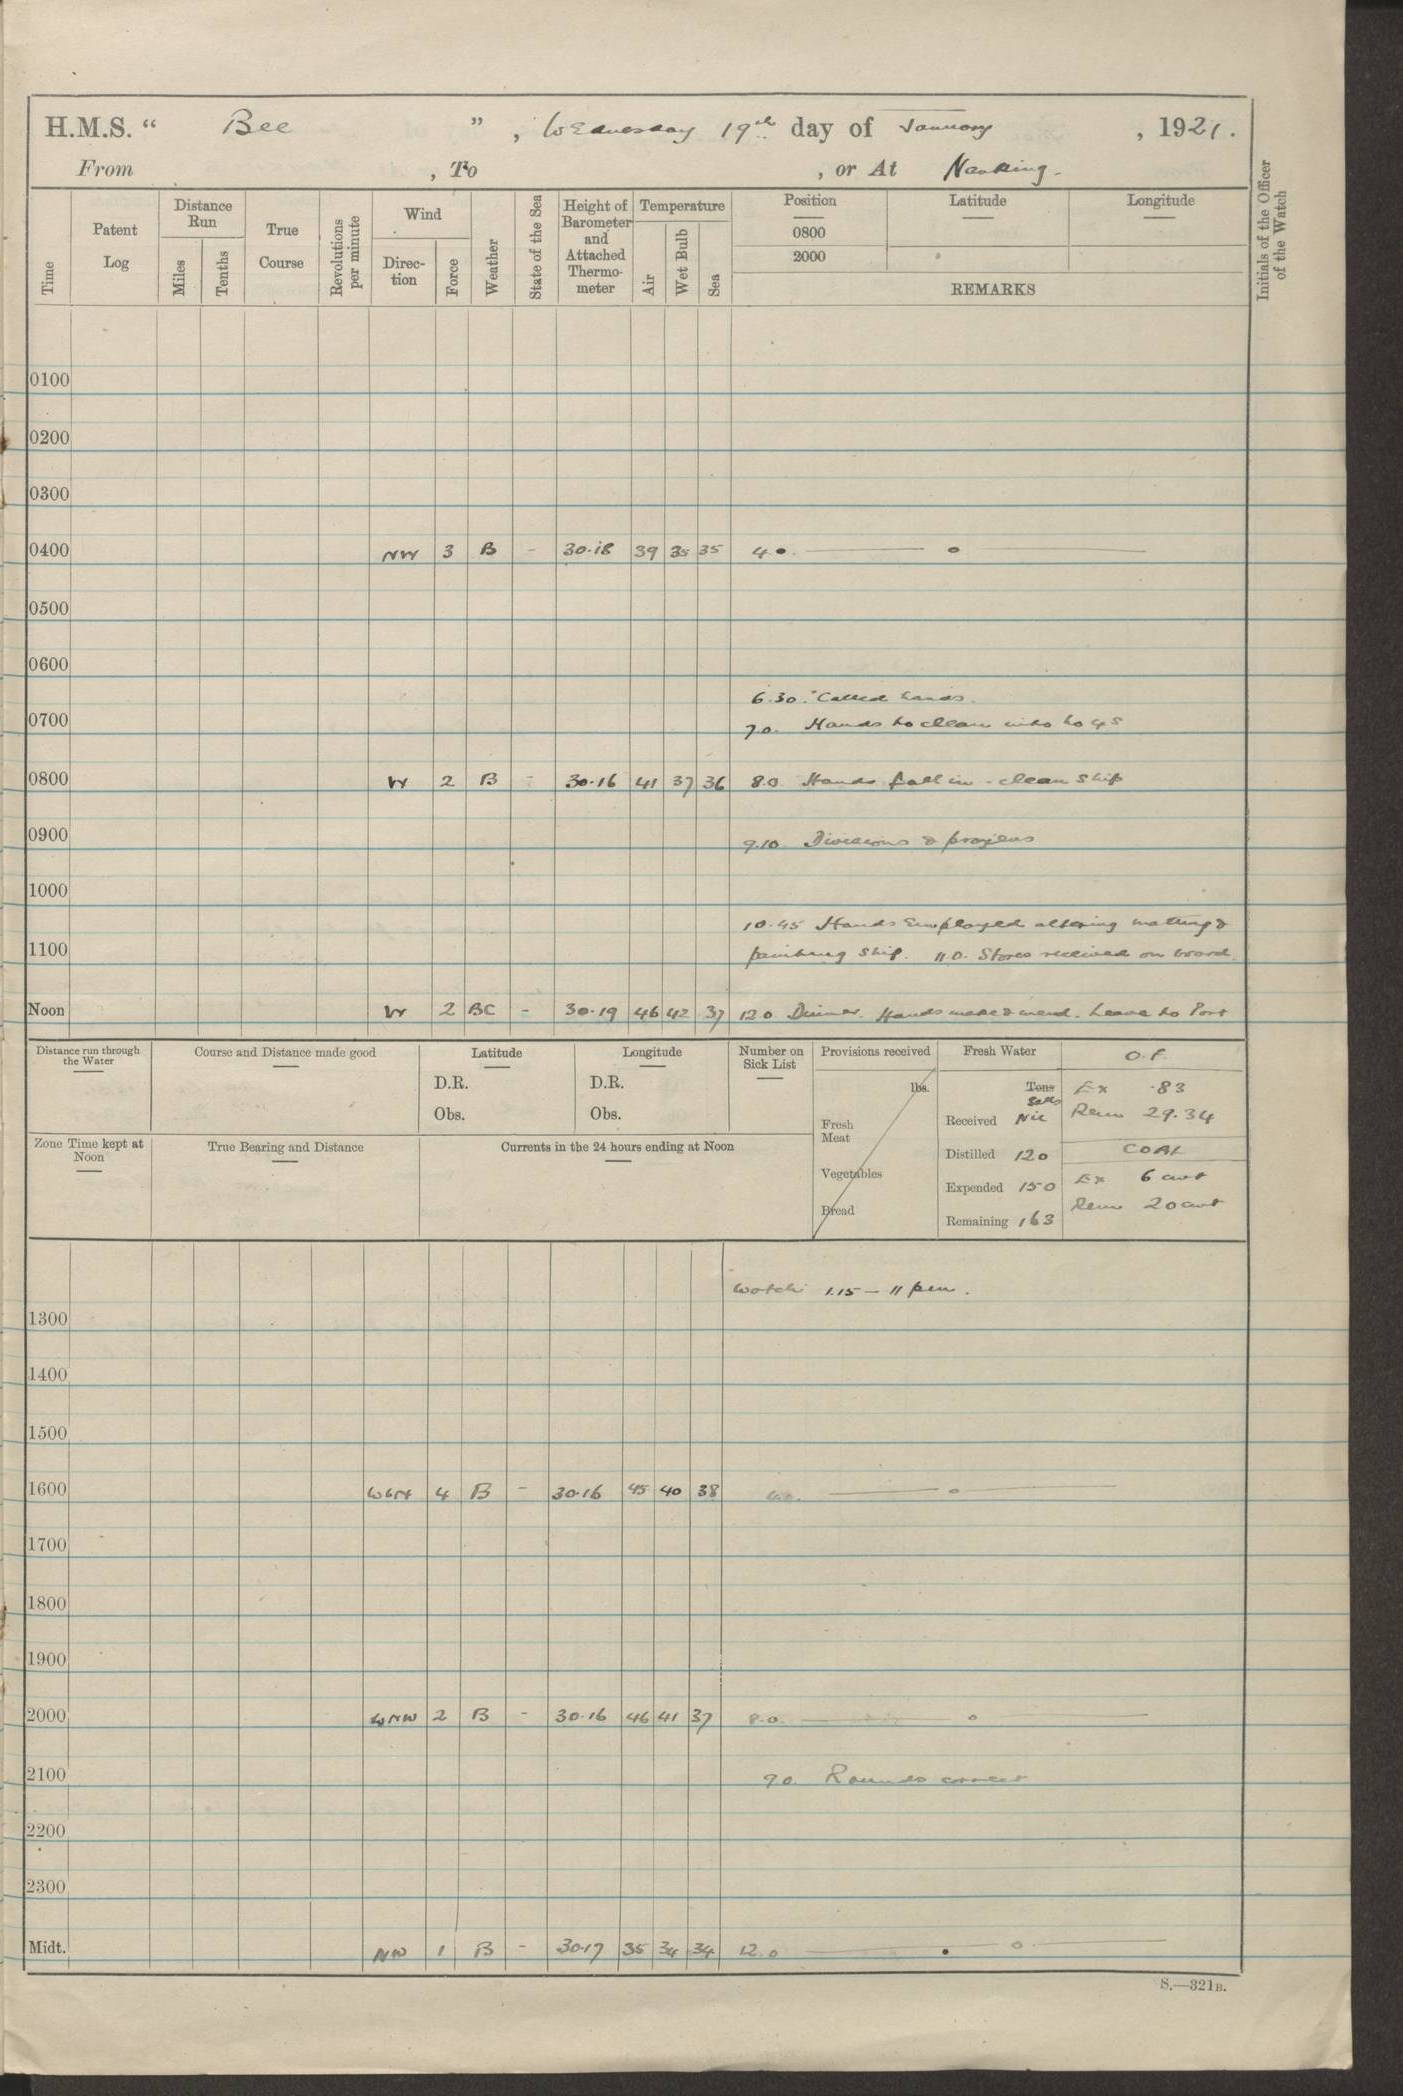 H.M.S. “ Bee ” , Wednesday 19th day of January , 1921.
From , To , or At Nanking.
Time
Patent Log
Distance Run
Miles
Tenths
True Course
Revolutions per minute
Wind
Direction
Force
Weather
State of the Sea
Height of Barometer and Attached Thermometer
Temperature
Air
Wet Bulb
Sea
Position
0800
2000
Latitude
Longitude
REMARKS
Initials of the Officer of the Watch
0100
0200
0300
0400 NW 3 B - 30.18 39 35 35 4.0. — 0 —
0500
0600
6.30. Called hands.
0700 7.0. Hands to clean into No 4s
0800 W 2 B - 30.16 41 37 36 8.0 Hands fall in - clean ship
0900 9.10 Divisions & prayers
1000
10.45 Hands Employed altering matting &
1100 painting ship. 11.0. Stores received on board
Noon W 2 BC - 30.19 46 42 37 12.0 Dinner. Hands make & mend. Leave to Port
Distance run through the Water
Course and Distance made good
Latitude
D.R.
Obs.
Longitude
D.R.
Obs.
Number on Sick List
Provisions received
lbs.
Fresh Meat
Vegetables
Bread
Fresh Water
Tons
Received Nil
Distilled 120
Expended 150
Remaining 163
O.F.
Ex .83
Rem 29.34
COAL
Ex 6 cwt
Rem 20 cwt
Zone Time kept at Noon
True Bearing and Distance
Currents in the 24 hours ending at Noon
Watch 1.15 — 11 pm.
1300
1400
1500
1600 4 B - 30.16 45 40 38 4.0. — 0 —
1700
1800
1900
2000 WNW 2 B - 30.16 46 41 37 8.0. — 0 —
2100 9.0. Rounds correct
2200
2300
Midt. NW 1 B - 30.17 35 34 34 12.0 — 0 —
S.—321B.